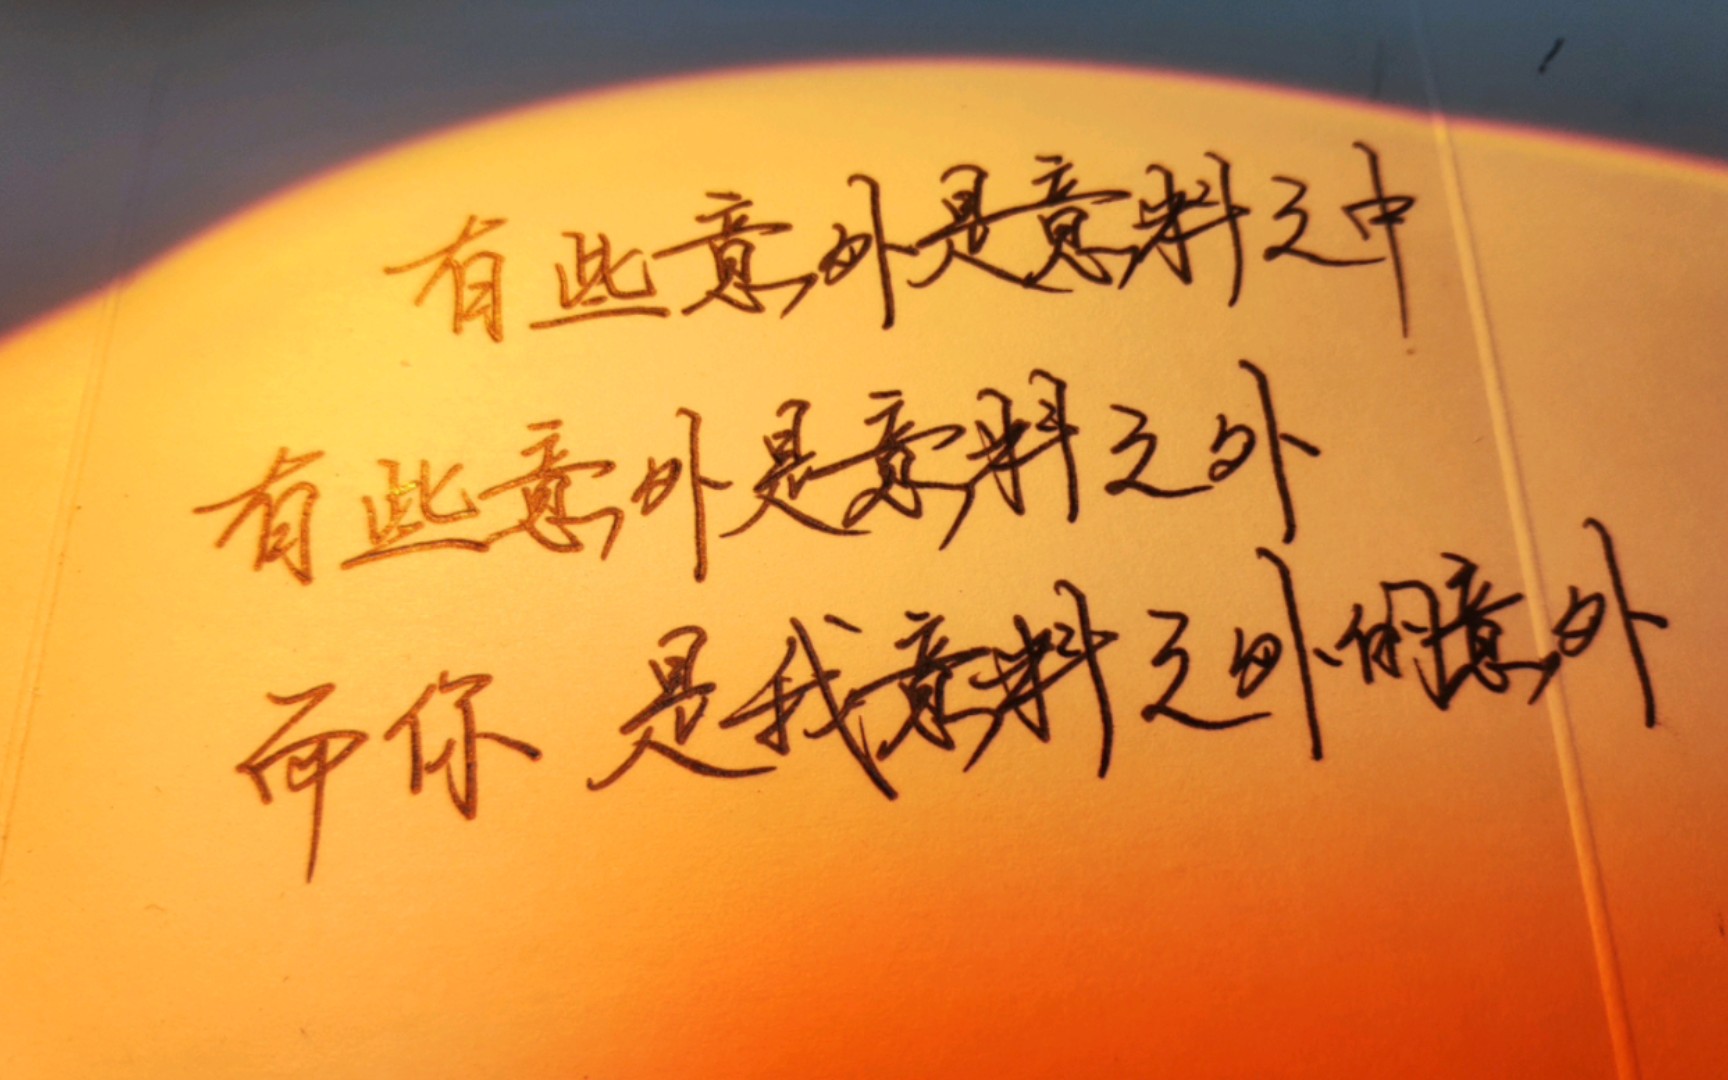 有些意外是意料之中
有些意外是意料之外
而你 是我意料之外的意外